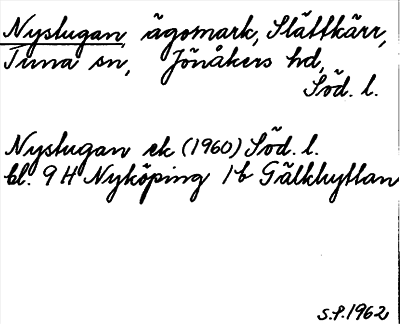 Nystugan, ägomark, Slättkärr,
Tuna sn, Jönåkers hd,
Söd. l.
Nystugan ek (1960) Söd. l.
bl. 9 H Nyköping 1b Gälkhyttan
S.P. 1962